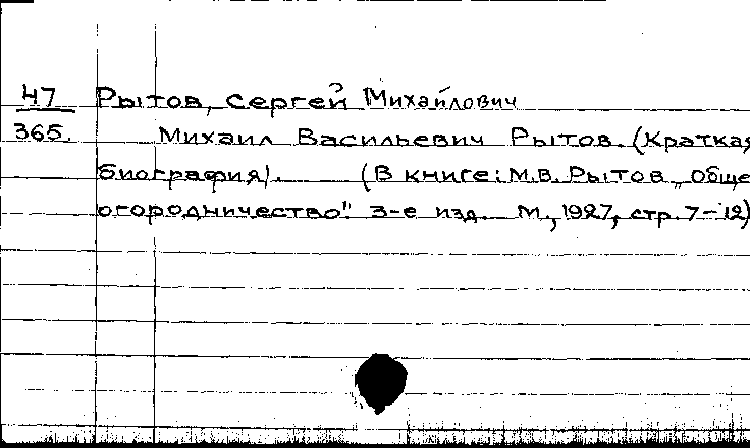 47 Рытов, Сергей Михайлович
365. Михаил Васильевич Рытов. (Краткая
биография). (В книге: М.В. Рытов „Обще
огородничество" 3-е изд. М., 1927, стр. 7-12)